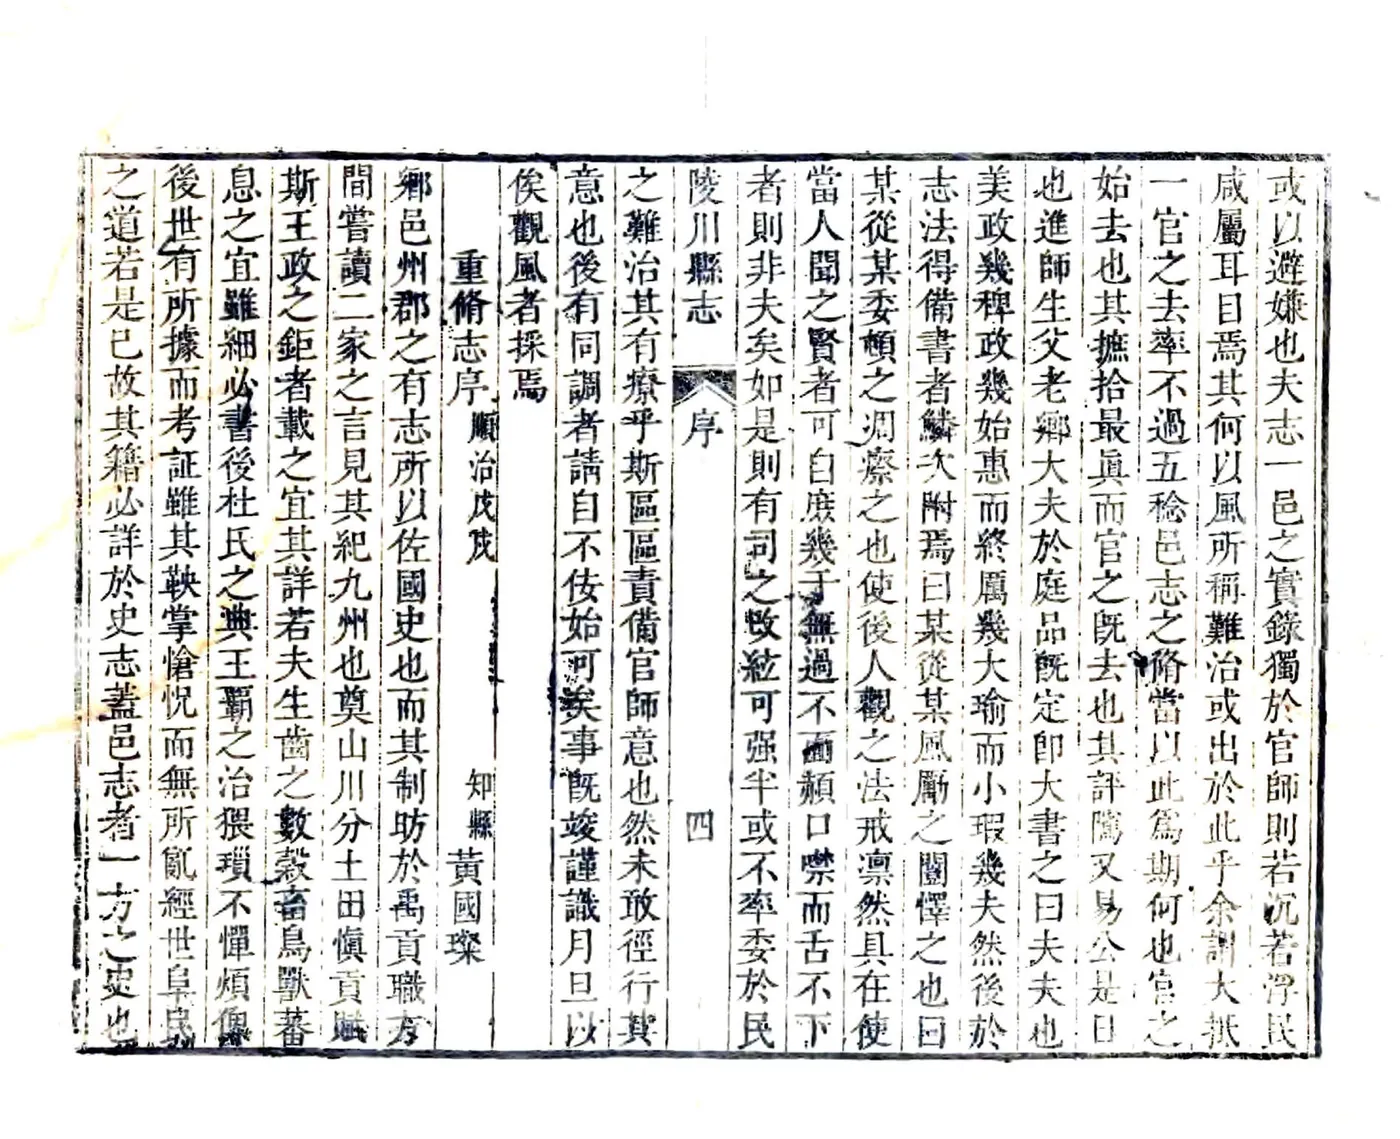 或以避嫌也夫志一邑之實錄獨於官師則若沉若浮民
咸屬耳目焉其何以風所稱難治或出於此乎余謂大抵
一官之去率不過五稔邑志之脩當以此爲期何也官之
始去也其摭拾最眞而官之旣去也其評隲又易公是日
也進師生父老鄉大夫於庭品旣定卽大書之曰夫夫也
美政幾稗政幾始惠而終厲幾大瑜而小瑕幾夫然後於
志法得備書者鱗次附焉曰某從某風勵之闓懌之也曰
某從某委頓之凋瘵之也使後人觀之法戒凛然具在使
當人聞之賢者可自庶幾于無過不面頳口噤而舌不下
者則非夫矣如是則有司之改絃可强半或不率委於民
陵川縣志 序 四
之難治其有瘳乎斯區區責備官師意也然未敢徑行其
意也後有同調者請自不佞始可矣事旣竣謹識月旦以
俟觀風者採焉
重脩志序 順治戊戌 知縣 黃國璨
鄉邑州郡之有志所以佐國史也而其制昉於禹貢職方
間嘗讀二家之言見其紀九州也奠山川分土田愼貢賦
斯王政之鉅者載之宜其詳若夫生齒之數穀畜鳥獸蕃
息之宜雖細必書後杜氏之典王覇之治猥瑣不憚煩俾
後世有所據而考証雖其鞅掌愴怳而無所亂經世阜民
之道若是已故其籍必詳於史志蓋邑志者一方之史也